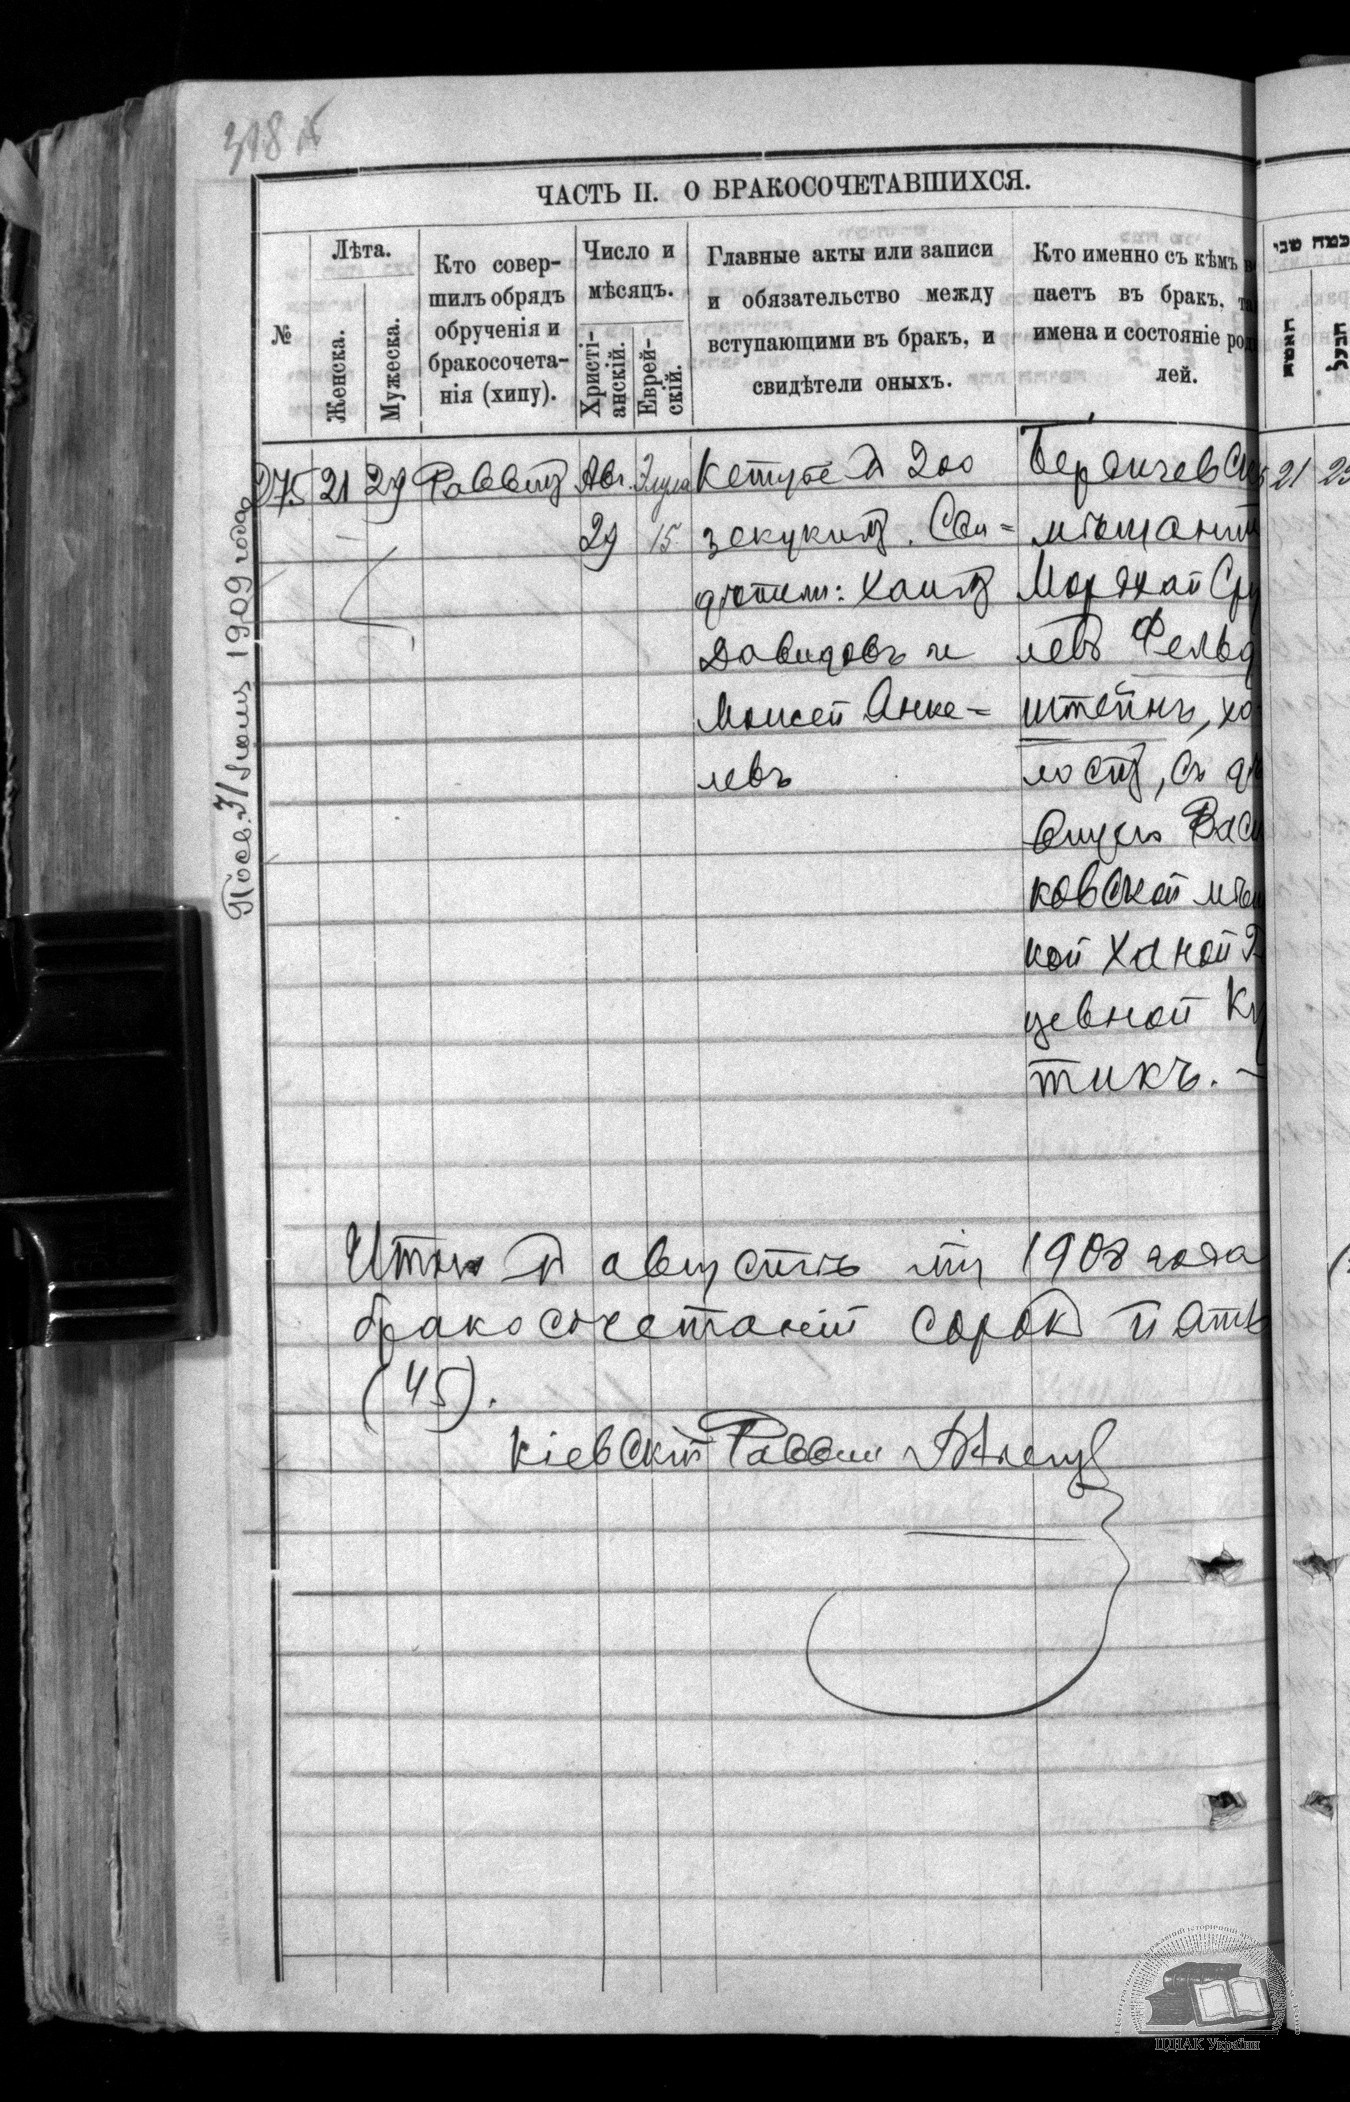 318
ЧАСТЬ II. О БРАКОСОЧЕТАВШИХСЯ.
№
Лѣта.
Женска.
Мужеска.
Кто совер-
шилъ обрядъ
обрученія и
бракосочета-
нія (хипу).
Число и
мѣсяцъ.
Христі-
анскій.
Еврей-
скій.
Главные акты или записи
и обязательство между
вступающими въ бракъ, и
свидѣтели оныхъ.
Кто именно съ кѣмъ
паетъ въ бракъ,
имена и состояніе
лей.
כמה שני
האשה
275
21
29
Раввинъ
Авг.
29
Элула
15
Кетубе въ 200
зекукимъ. Сви=
дѣтели: Хаимъ
Давидовъ и
Моисей Янке=
левъ
Бердичевск
мѣщанин
Мордхай Сру
левъ Фельд
штейнъ, хо
лостъ, съ дѣ
вицею Васи
ковской мѣщ
кой Ханой
цевной Ку
тикъ. —
21
29
Пров. 31 1909 года
Итого въ августѣ мц 1908 года
бракосочетаній сорокъ пять
(45).
Кіевскій Раввинъ
ЦДІАК України